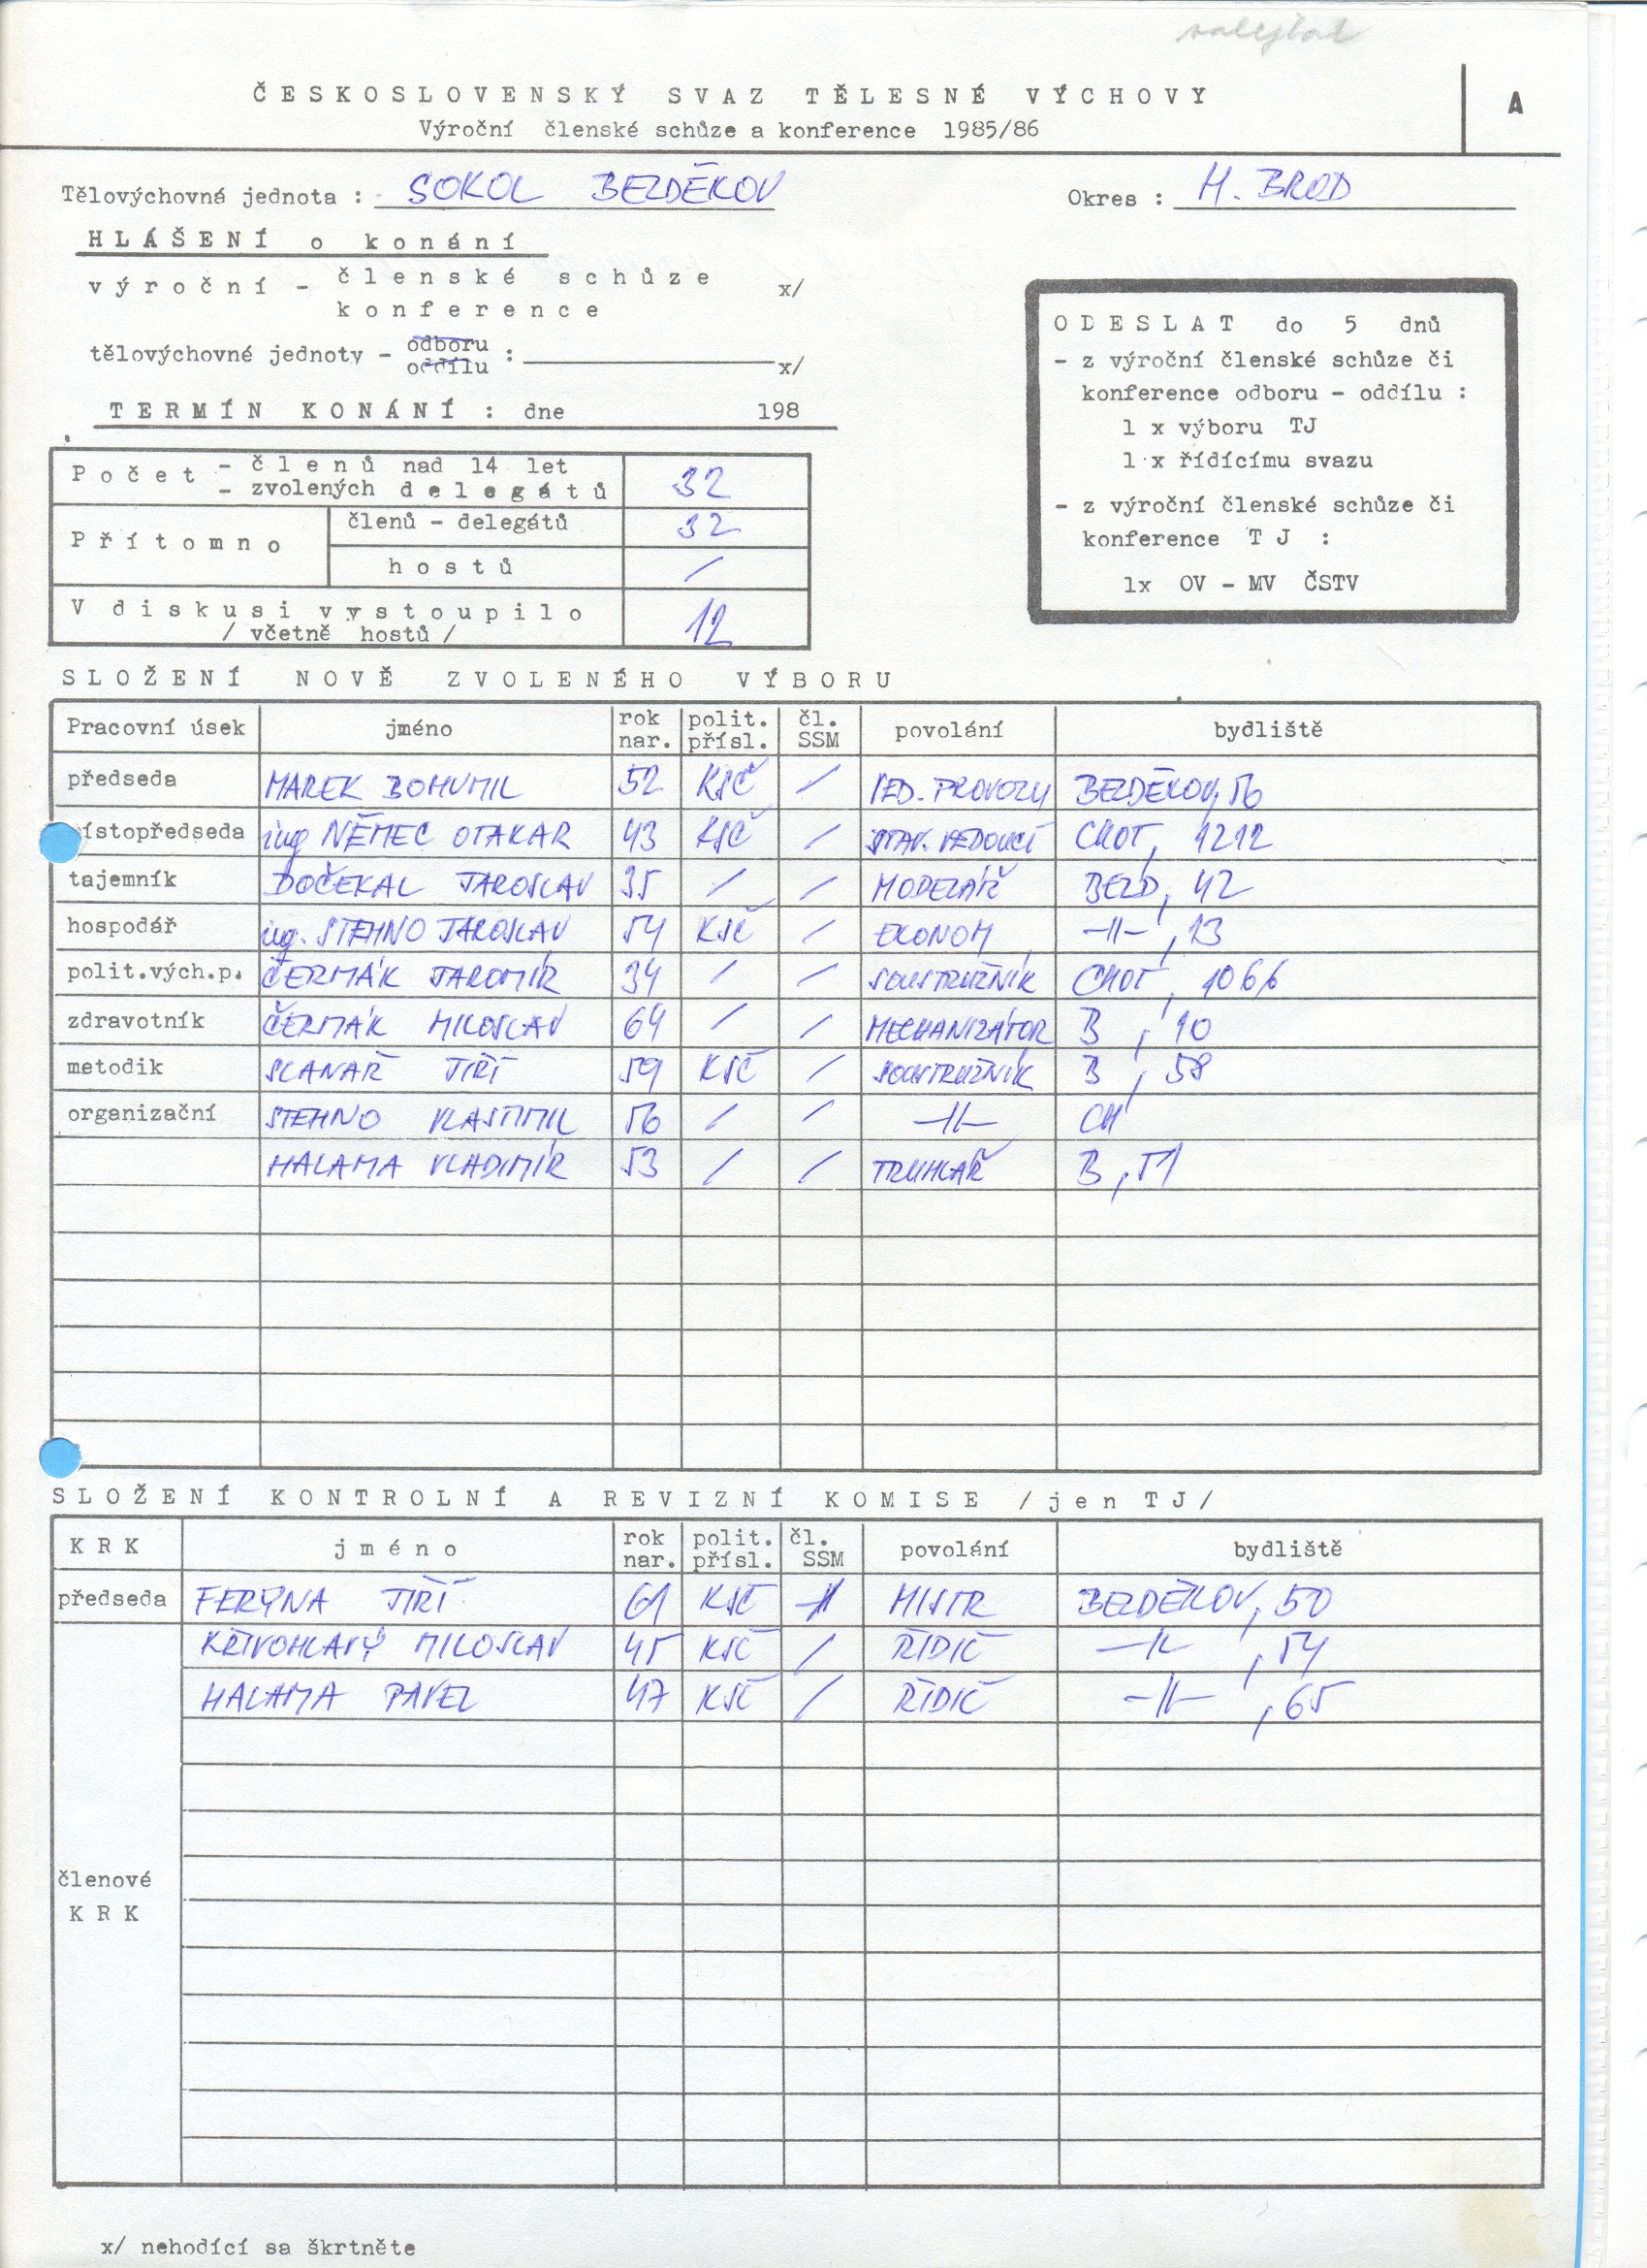 ČESKOSLOVENSKÝ SVAZ TĚLESNÉ VÝCHOVY
A
Výroční členské schůze a konference 1985/86
Tělovýchovná jednota : SOKOL BEZDĚKOV Okres : H. BROD
HLÁŠENÍ o konání
výroční - členské schůze x/
konference
tělovýchovné jednoty - odboru : x/
oddílu
TERMÍN KONÁNÍ : dne 198
ODESLAT do 5 dnů
- z výroční členské schůze či
konference odboru - oddílu :
1 x výboru TJ
1 x řídícímu svazu
- z výroční členské schůze či
konference TJ :
1x OV - MV ČSTV
Počet - členů nad 14 let 32
- zvolených delegátů
Přítomno členů - delegátů 32
hostů /
V diskusi vystoupilo 12
/ včetně hostů /
SLOŽENÍ NOVĚ ZVOLENÉHO VÝBORU
Pracovní úsek jméno rok nar. polit. přísl. čl. SSM povolání bydliště
předseda MAREK BOHUMIL 52 KSČ / VED. PROVOZU BEZDĚKOV, 56
ístopředseda ing NĚMEC OTAKAR 43 KSČ / STAV. VEDOUCÍ CHOT, 1212
tajemník DOČEKAL JAROSLAV 35 / / MODELÁŘ BEZD, 42
hospodář ing. STEHNO JAROSLAV 54 KSČ / EKONOM -//-, 13
polit.vých.p. ČERMÁK JAROMÍR 34 / / SOUSTRUŽNÍK CHOT, 1066
zdravotník ČERMÁK MILOSLAV 64 / / MECHANIZÁTOR B, 10
metodik SLANAŘ JIŘÍ 59 KSČ / SOUSTRUŽNÍK B, 58
organizační STEHNO VLASTIMIL 56 / / -//- CH
HALAMA VLADIMÍR 53 / / TRUHLAŘ B, 51
SLOŽENÍ KONTROLNÍ A REVIZNÍ KOMISE /jen TJ/
KRK jméno rok nar. polit. přísl. čl. SSM povolání bydliště
předseda FERYNA JIŘÍ 61 KSČ MISTR BEZDĚKOV, 50
KŘIVOHLAVÝ MILOSLAV 45 KSČ / ŘIDIČ -//-, 54
HALAMA PAVEL 47 KSČ / ŘIDIČ -//-, 65
členové
KRK
x/ nehodící sa škrtněte